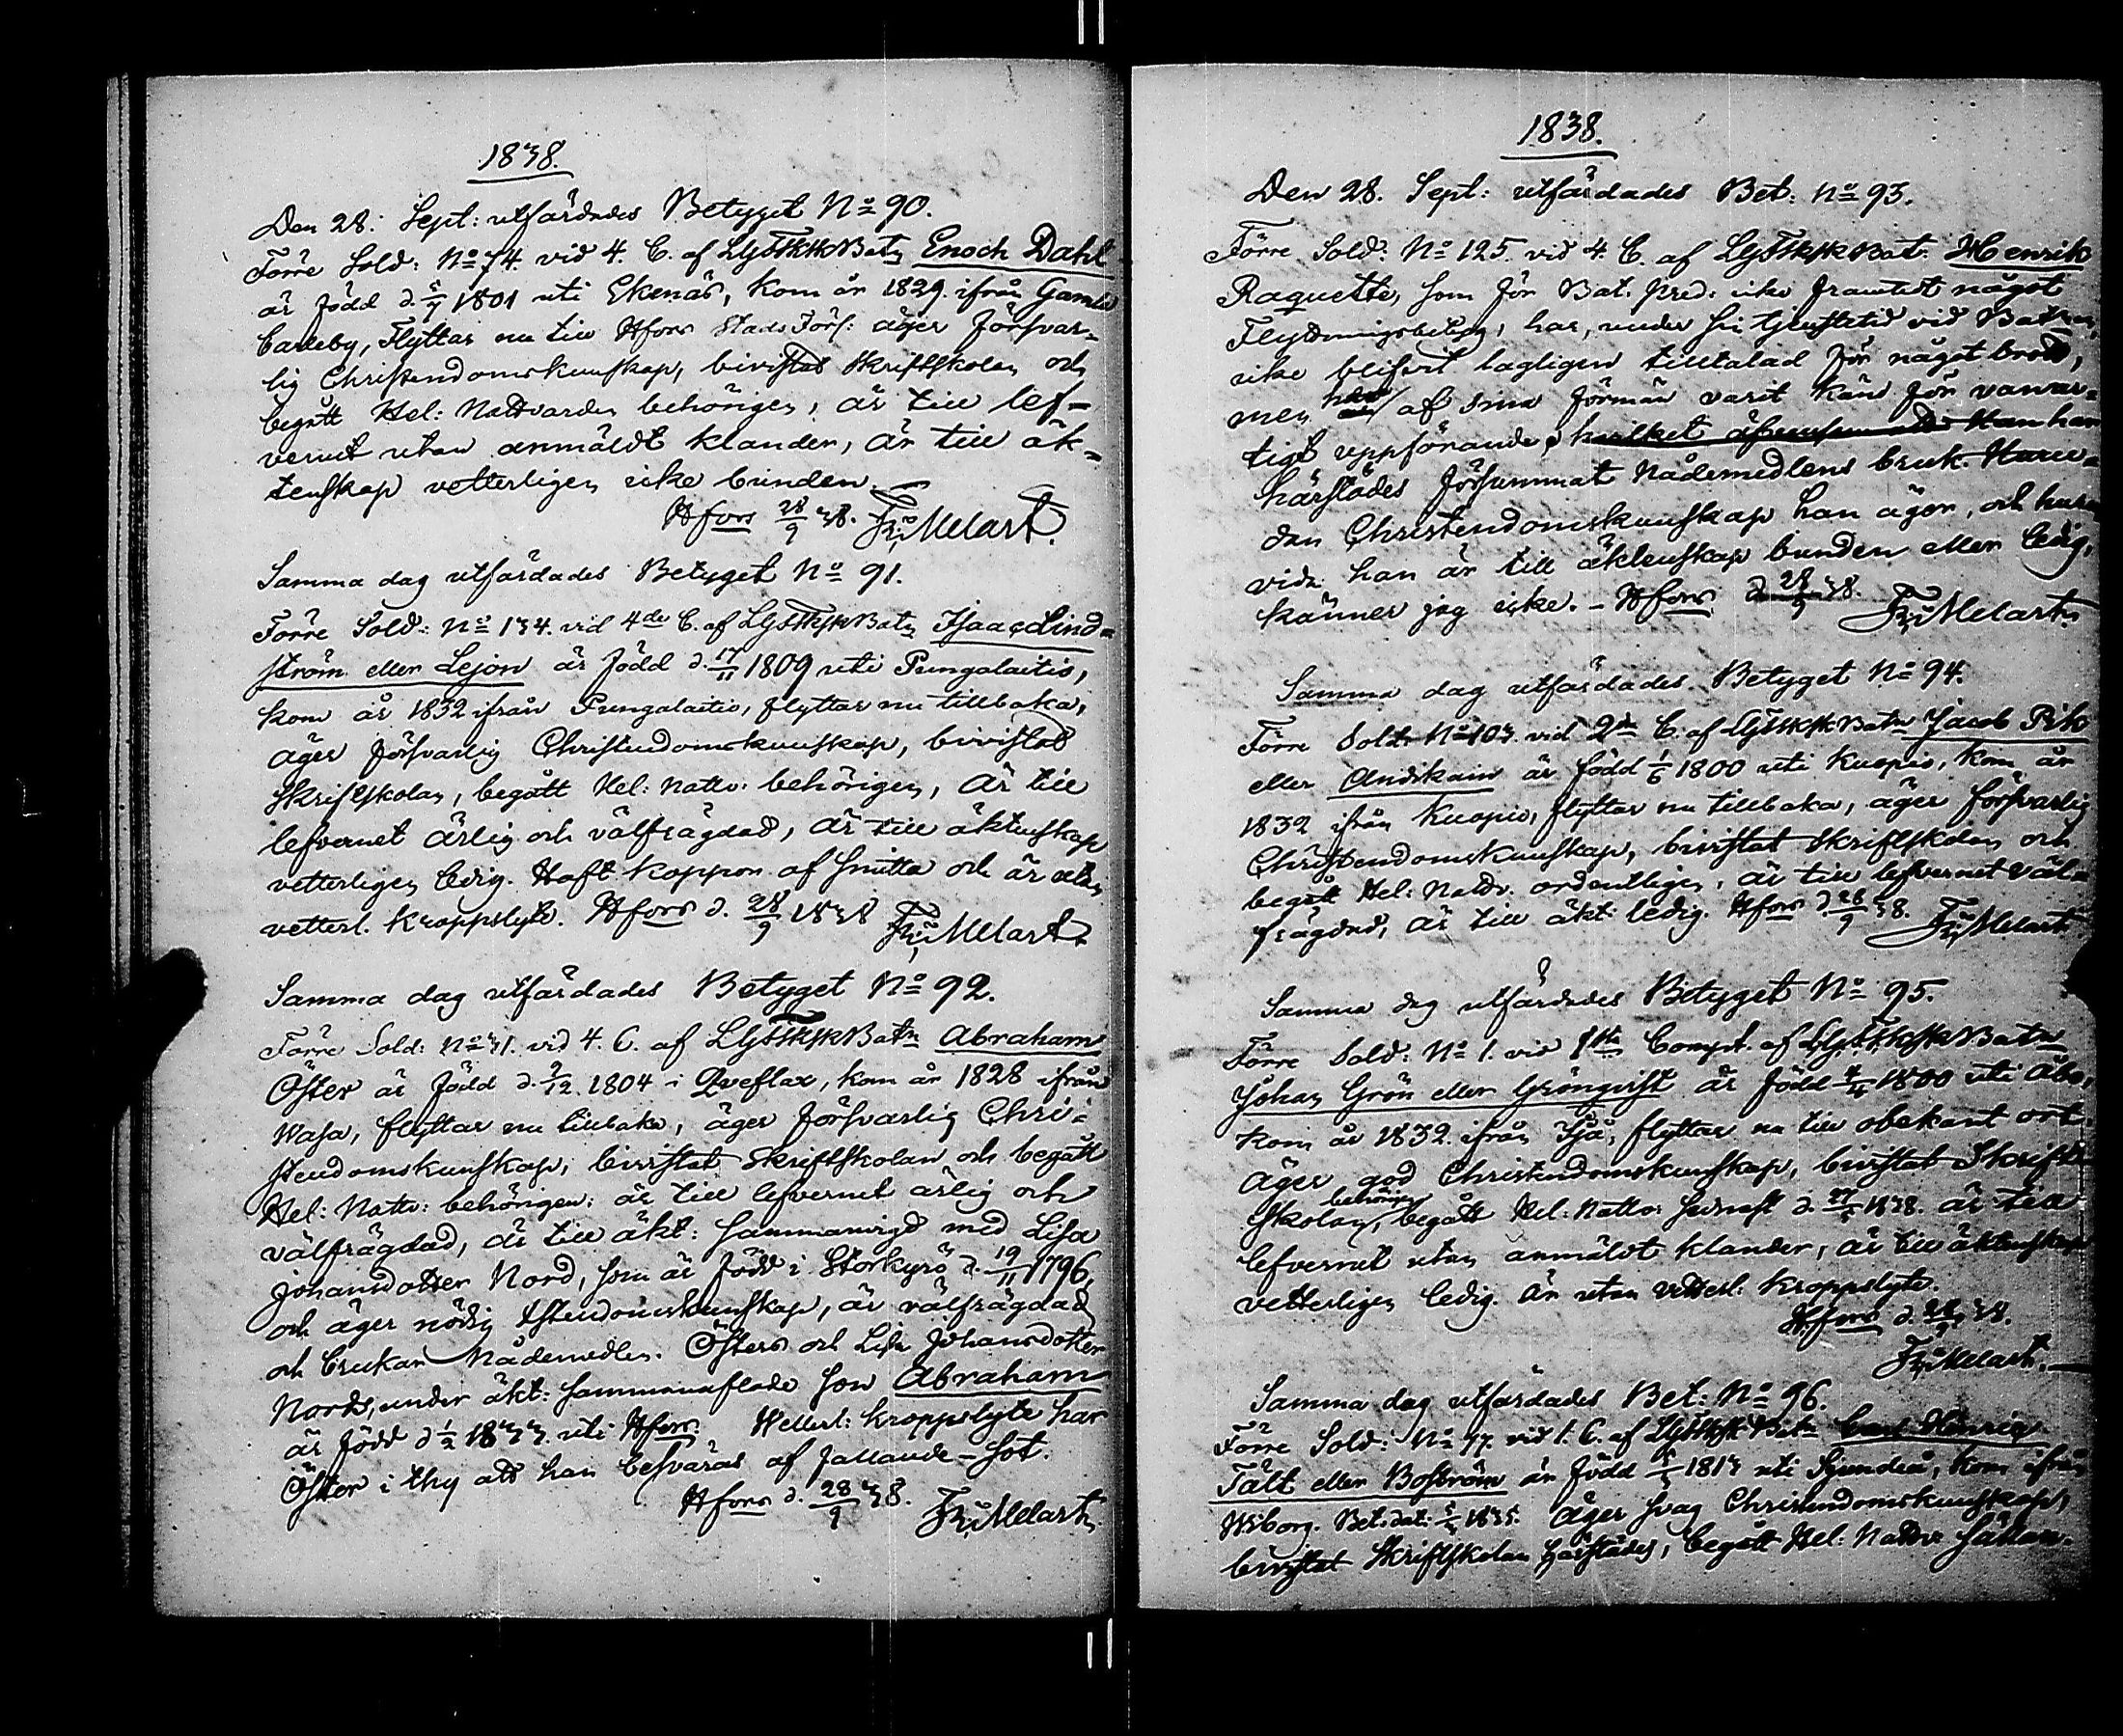 1838.
Den 28. Sept: utfärdades Betyget No 90.
Förre Sold: No 74. vid 4. C. af LGFSkSkBatn Enoch Dahl
är född d. 1801 uti Ekenäs, kom år 1829. ifrån Gamla
Carleby, Flyttar nu till Hfors Stads Förs: äger försvar-
lig Christendomskunskap, bivistat Skriftskolan och
begått Hel: Nattvarden behörigen, är till lef-
vernet utan anmäldt klander, är till äk-
tenskap vetterligen icke bunden. —
Hfors 28/9 38. Fr: Melart.
Samma dag utfärdades Betyget No 91.
Förre Sold: No 134. vid 4de C. af LGFSkSkBatn Isaac Lind-
ström eller Lejon är född d. 17/11 1809 uti Pungalaitio,
kom år 1832 ifrån Pungalaitio, flyttar nu tillbaka,
äger försvarlig Christendomskunskap, bivistat
Skriftskolan, begått Hel: Nattv: behörigen, är till
lefvernet ärlig och välfrägdad, är till äktenskap
vetterligen ledig. Haft koppor af smitta och är utan
vetterl. kroppslyte. Hfors d. 28/9 1838 Fr: Melart.
Samma dag utfärdades Betyget No 92.
Förre Sold: No 31. vid 4. C. af LGFSkSkBatn Abraham
Öster är född d. 1804 i Qveflax, kom år 1828 ifrån
Wasa, flyttar nu tillbaka, äger försvarlig Chri-
stendomskunskap, bivistat Skriftskolan och begått
Hel: Nattv: behörigen: är till lefvernet ärlig och
välfrägdad, är till äkt: sammanvigd med Lisa
Johansdotter Nord, som är född i Storkyrö d. 19/11 1796,
och äger nödig Xstendomskunskap, är välfrägdad
och brukar Nådemedlen. Östers och Lisa Johansdotter
Nords, under äkt: sammanaflade son Abraham
är född d 1/2 1833. uti Hfors. Wetterl: kroppslyte har
Öster i thy att han besväras af fallande-sot.
Hfors d. 28/9 38. Fr: Melart.
1838.
Den 28. Sept: utfärdades Bet: No 93.
Förre Sold: No 125. vid 4. C. af LGFSkSkBat. Henrik
Raquette, som för Bat. Pred: icke framtedt något
Flyttningsbetyg, har, under sin tjenstetid vid Batn,
icke blifvit lagligen tilltalad för något brott,
men har af sina förmän varit känd för vanar-
tigt uppförande, hvilket Han har
härstädes försummat Nådemedlens bruk. Huru-
dan Christendomskunskap han äger, och huru-
vida han är till äktenskap bunden eller ledig,
känner jag icke. – Hfors d 28/9 38.
Fr: Melart.
Samma dag utfärdades Betyget No 94.
Förre Sold: No 103. vid 2dra C. af LGFSkSkBatn Jacob Pik
eller Andikain är född 1/6 1800 uti Kuopio, kom år
1832 ifrån Kuopio, flyttar nu tillbaka, äger försvarlig
Christendomskunskap, bivistat Skriftskolan och
begått Hel: Nattv. ordentligen, är till lefvernet väl-
frägdad, är till äkt: ledig. Hfors d 28/9 38.
Fr: Melart.
Samma dag utfärdades Betyget No 95.
Förre Sold: No 1. vid 1sta Comp. af LGFSkSkBatn
Johan Grön eller Grönqvist är född 1800 uti Åbo,
kom år 1832. ifrån Sjå, flyttar nu till obekant ort.
äger god Christendomskunskap, bivistat Skrift-
behörigen
skolan, begått Hel: Nattv: sednast d. 1838. är till
lefvernet utan anmäldt klander, är till äktenskap
vetterligen ledig. Är utan vetterl: kroppslyte.
Hfors d. 28/9 38.
Fr: Melart.
Samma dag utfärdades Bet: No 96.
Förre Sold: No 77. vid 1. C. af LGFSkSk Batn Carl Henric
Tält eller Boström är född 1813 uti Sjundeå, kom ifrån
Wiborg. Bet: dat: 1835. Äger svag Christendomskunskap,
bivistat Skriftskolan härstädes, begått Hel: Nattv: sällan.